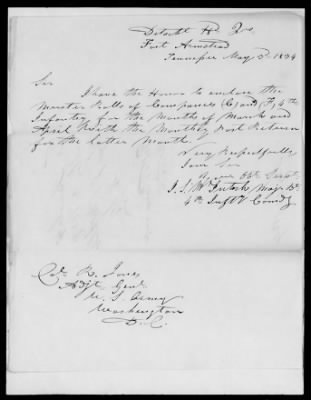 Detacht Hd Qrs
Fort Armstead
Tennessee May 3d 1834
Sir
I have the Honor to enclose the
Muster Rolls of Companies (C) and (F) 4th
Infantry for the Months of March and
April with the Monthly Post Return
for the latter Month.
Very Respectfully
I am Sir
Your Obt Servt
4th Inft'y Comdg
Col. R. Jones
Adjt Genl
U. S. Army
Washington
D. C.